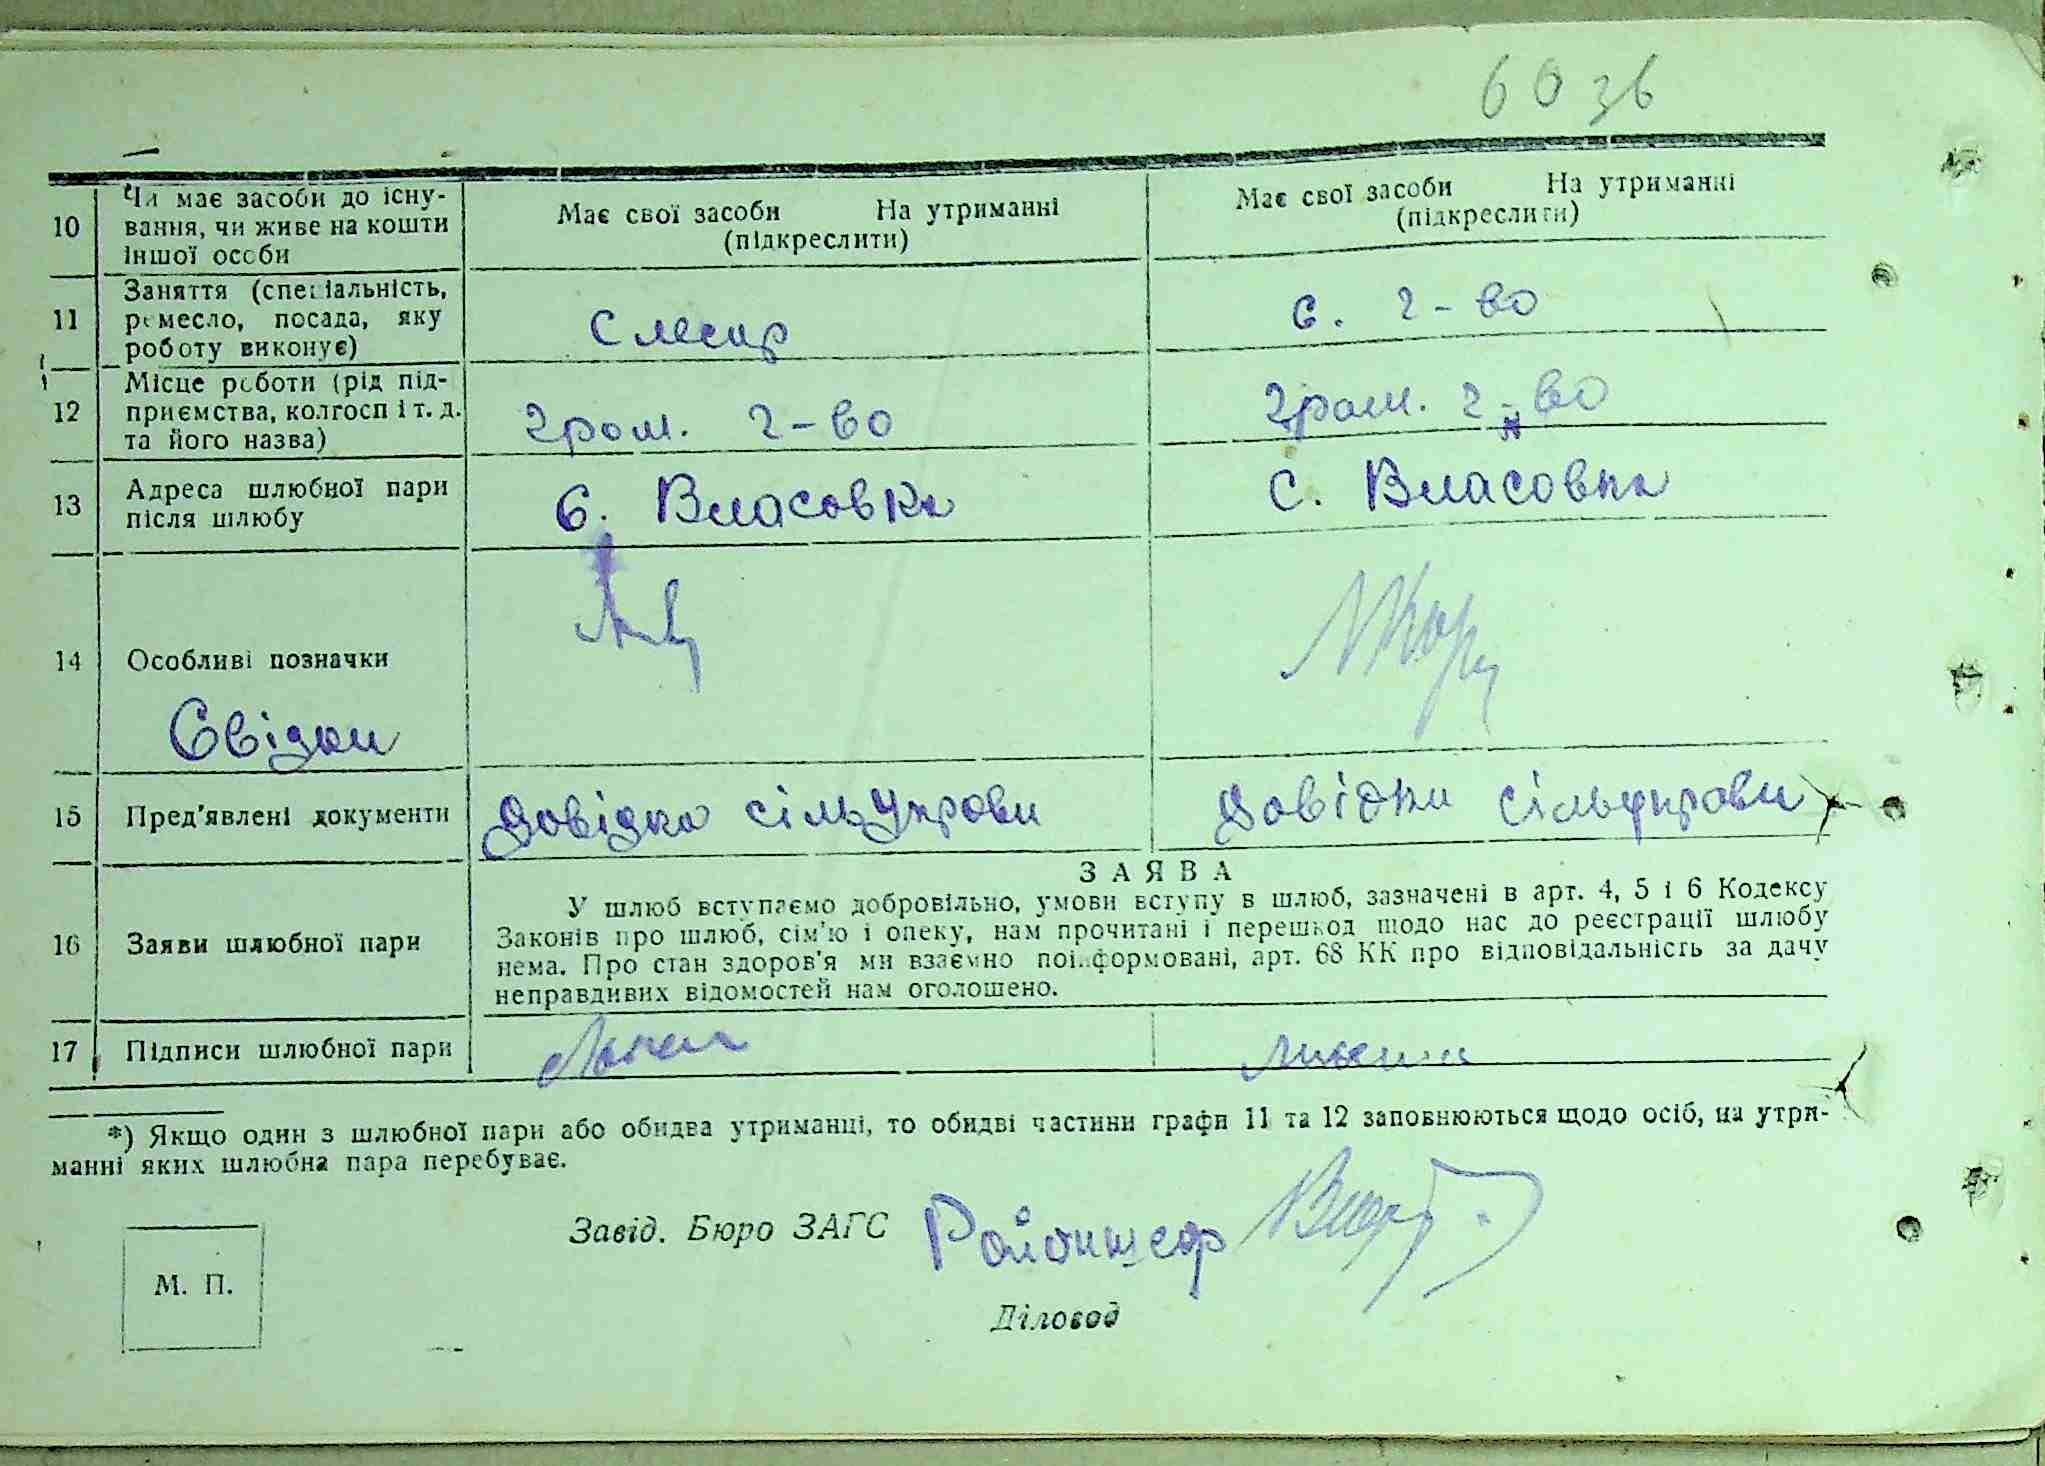 60 зв
10 Чи має засоби до існу-
вання, чи живе на кошти
іншої особи
Має свої засоби На утриманні
(підкреслити)
Має свої засоби На утриманні
(підкреслити)
11 Заняття (спеціальність,
ремесло, посада, яку
роботу виконує)
Слесар
с. г-во
12 Місце роботи (рід під-
приємства, колгосп і т. д.
та його назва)
Гром. г-во
Гром. г-во
13 Адреса шлюбної пари
після шлюбу
С. Власовка
С. Власовка
14 Особливі позначки
Свідки
15 Пред'явлені документи
Довідка сільуправи
Довідки сільуправи
16 Заяви шлюбної пари
ЗАЯВА
У шлюб вступаємо добровільно, умови вступу в шлюб, зазначені в арт. 4, 5 і 6 Кодексу
Законів про шлюб, сім'ю і опеку, нам прочитані і перешкод щодо нас до реєстрації шлюбу
нема. Про стан здоров'я ми взаємно поінформовані, арт. 68 КК про відповідальність за дачу
неправдивих відомостей нам оголошено.
17 Підписи шлюбної пари
*) Якщо один з шлюбної пари або обидва утриманці, то обидві частини графи 11 та 12 заповнюються щодо осіб, на утри-
манні яких шлюбна пара перебуває.
Завід. Бюро ЗАГС
М. П.
Діловод